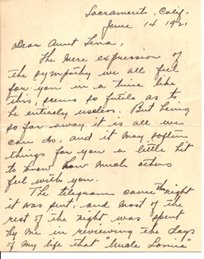 Sacramento, Calif.
June 14 1921
Dear Aunt Lena,
The mere expression of
the sympathy we all feel
for you in a time like
this, seems so futile as to
be entirely useless. But being
so far away it is all we
can do, and it may soften
things for you a little bit
to know how much others
feel with you.
The telegram came the night
it was sent, and most of the
rest of the night was spent
by me in reviewing the days
of my life that "Uncle Louis"